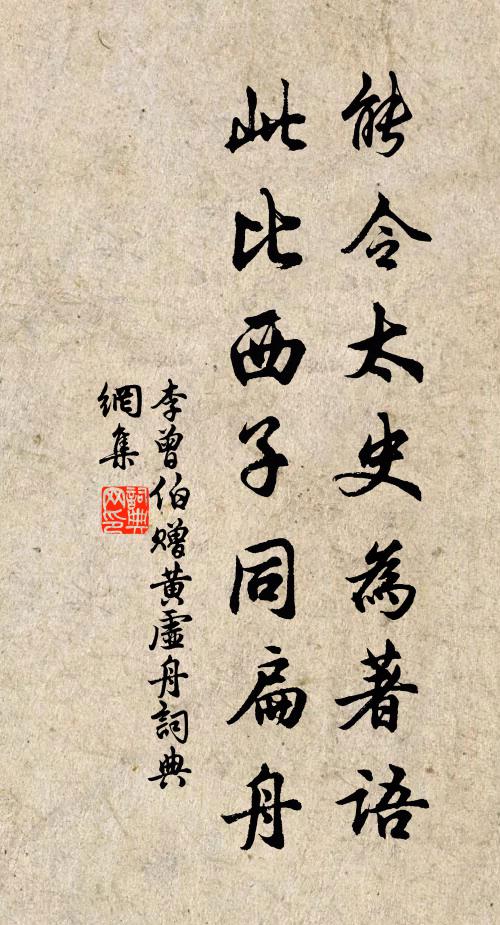 能令太史為著語
此比西子同扁舟
李曾伯贈黃虛舟詞典
網集
詞典
网印